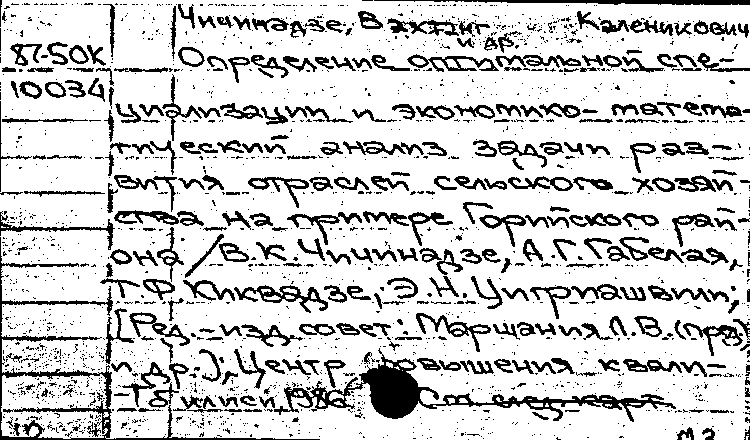 Чичинадзе, Вахтанг Каленикович
и др.
87-50К Определение оптимальной спе-
10034 циализации и экономико-матема-
тический анализ задачи раз-
вития отраслей сельского хозяй-
ства на примере Горийского рай-
она / В.К. Чичинадзе, А.Г. Габелая,
Т.Ф. Киквадзе, Э.Н. Цитриашвили;
[Ред.-изд. совет: Маршания Л.В. (пред)
и др.); Центр повышения квали-
Тбилиси, 1986 См след карт